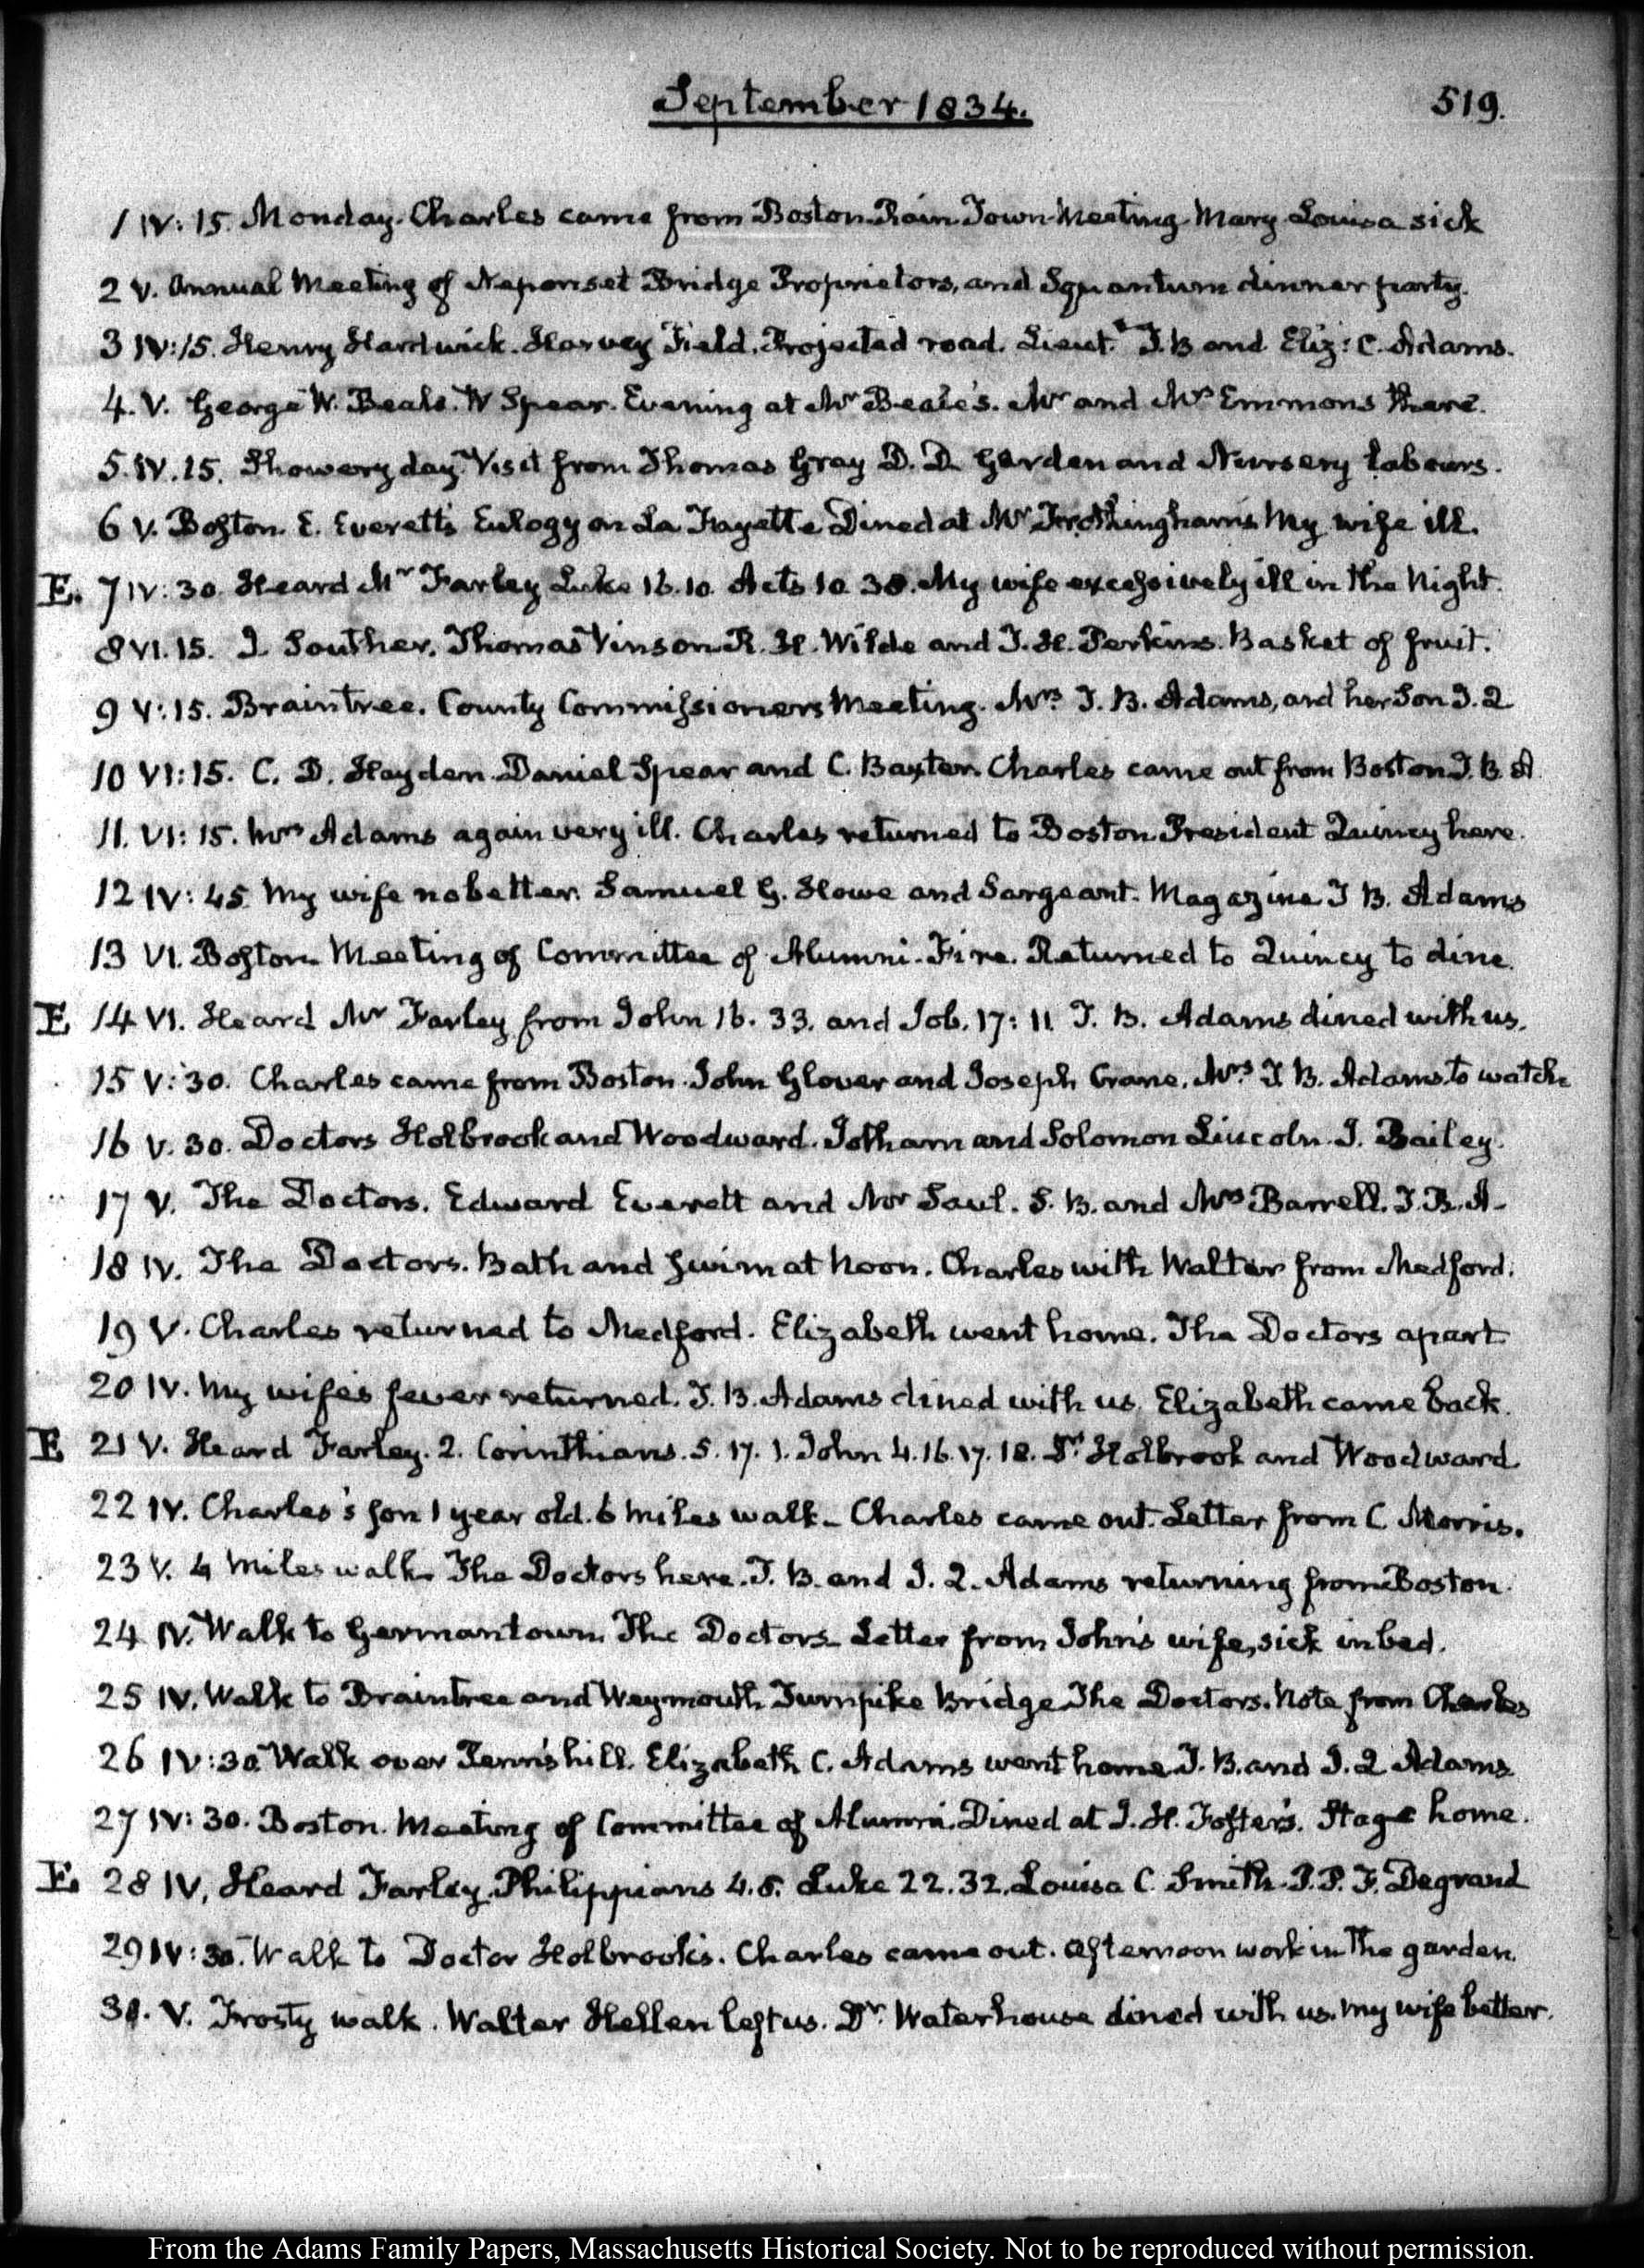 September 1834.
519.
1 IV: 15. Monday. Charles came from Boston. Rain. Town Meeting. Mary Louisa sick
2 V. Annual Meeting of Neponset Bridge Proprietors, and Squantum dinner party.
3 IV:15. Henry Hardwick. Harvey Field. Projected road. Lieut. T. B and Eliz: C. Adams.
4. V. George W. Beale. W Spear. Evening at Mr Beale's. Mr and Mrs Emmons there.
5. IV. 15. Showery day. Visit from Thomas Gray D. D. Garden and Nursery labours.
6 V. Boston. E. Everett's Eulogy on La Fayette Dined at Mr Frothingham's My wife ill.
E. 7 IV: 30. Heard Mr Farley Luke 16. 10. Acts 10. 38. My wife excessively ill in the Night.
8 VI. 15. J. Souther. Thomas Vinson R. H. Wilde and T. H. Perkins. Basket of fruit.
9 V: 15. Braintree. County Commissioners Meeting. Mrs T. B. Adams, and her Son J. Q
10 VI: 15. C. D. Hayden. Daniel Spear and C. Baxter. Charles came out from Boston I. B. A
11. VI: 15. Mrs Adams again very ill. Charles returned to Boston. President Quincy here.
12 IV: 45. My wife no better. Samuel G. Howe and Sargeant. Magazine I B. Adams
13 VI. Boston Meeting of Committee of Alumni. Fire. Returned to Quincy to dine.
E 14 VI. Heard Mr Farley from John 16. 33. and Job. 17: 11 I. B. Adams dined with us.
15 V: 30. Charles came from Boston. John Glover and Joseph Crane. Mrs T B. Adams to watch
16 V. 30. Doctors Holbrook and Woodward. Jotham and Solomon Lincoln. J. Bailey.
17 V. The Doctors. Edward Everett and Mr Saul. S. B. and Mrs Barrell. I. B. A.
18 IV. The Doctors. Bath and swim at Noon. Charles with Walter from Medford.
19 V. Charles returned to Medford. Elizabeth went home. The Doctors apart
20 IV. My wife's fever returned. I. B. Adams dined with us. Elizabeth came back.
E 21 V. Heard Farley. 2. Corinthians. 5. 17. 1. John 4. 16. 17. 18. Drs Holbrook and Woodward
22 IV. Charles's son 1 year old. 6 Miles walk. Charles came out. Letter from C. Morris.
23 V. 4 Miles walk. The Doctors here. I. B. and J. Q. Adams returning from Boston.
24 IV. Walk to Germantown. The Doctors. Letter from John's wife, sick in bed.
25 IV. Walk to Braintree and Weymouth Turnpike Bridge The Doctors. Note from Charles
26 IV: 30. Walk over Penn's hill. Elizabeth C. Adams went home I. B. and J. Q Adams
27 IV: 30. Boston. Meeting of Committee of Alumni. Dined at J. H. Foster's. Stage home.
E. 28 IV. Heard Farley. Philippians 4. 8. Luke 22. 32. Louisa C. Smith. P. P. F. Degrand
29 IV: 30. Walk to Doctor Holbrook's. Charles came out. Afternoon work in the garden.
30. V. Frosty walk. Walter Hellen left us. Dr. Waterhouse dined with us. My wife better.
From the Adams Family Papers, Massachusetts Historical Society. Not to be reproduced without permission.